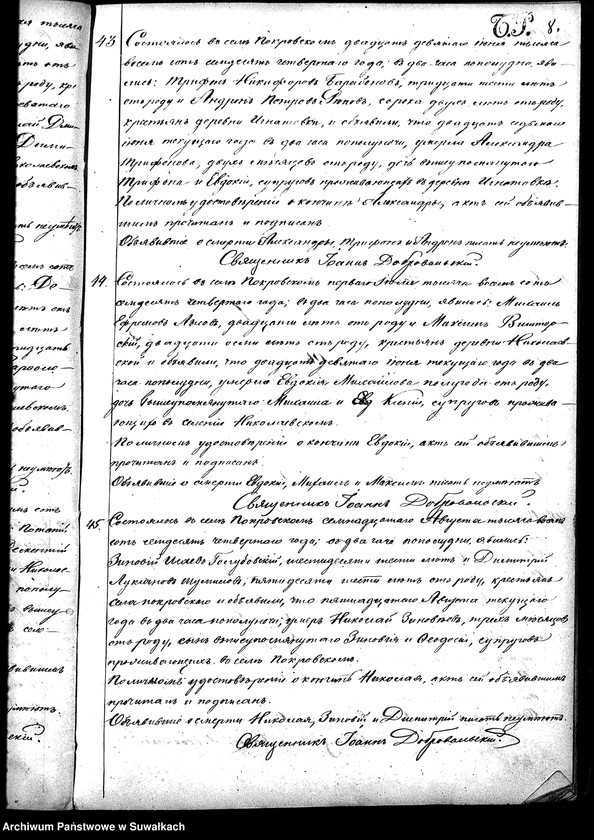 8.
43 Состоялось въ селѣ Покровскомъ двадцать девятаго Іюня тысяча
восемь сотъ семдесятъ четвертаго года; въ два часа пополудни, яви-
лись: Трифонъ Никифоровъ тридцати шести лѣтъ
отъ роду и Андрей Петровъ сорока двухъ лѣтъ отъ роду,
крестьяне деревни Игнатовки, и объявили, что двадцать седьмаго
Іюня текущаго года въ два часа пополуночи, умерла Александра
Трифонова, двухъ отъ роду, дочь вышеупомянутаго
Трифона и Евдокіи, супруговъ проживающихъ въ деревнѣ Игнатовкѣ.
По личномъ удостовѣреніи о кончинѣ Александры, актъ сей объявив-
шимъ прочитанъ и подписанъ
Объявившіе о смерти Александры, Трифонъ и Андрей писать неумѣютъ.
Священникъ Іоаннъ Добровольскій.
44. Состоялось въ селѣ Покровскомъ перваго Іюля тысяча восемь сотъ
семдесятъ четвертаго года; въ два часа пополудни, явились: Михаилъ
Ефремовъ двадцати лѣтъ отъ роду и Максимъ Виктор-
скій, двадцати осми лѣтъ отъ роду, крестьяне деревни Николаев-
ской и объявили, что двадцать девятаго Іюня текущаго года въ два
часа пополудни, умерла Евдокія Михайлова полугода отъ роду,
дочь вышеупомянутаго Михаила и супруговъ прожива-
ющихъ въ селеніи Николаевскомъ.
По личномъ удостовѣреніи о кончинѣ Евдокіи, актъ сей объявившимъ
прочитанъ и подписанъ.
Объявившіе о смерти Евдокіи, Михаилъ и Максимъ писать неумѣютъ
Священникъ Іоаннъ Добровольскій.
45. Состоялось въ селѣ Покровскомъ семнадцатаго Августа тысяча восемь
сотъ семдесятъ четвертаго года; въ два часа пополудни, явились:
Зиновій Исаевъ Голубовскій, шестидесяти шести лѣтъ и Дмитрій
Лукьяновъ пятидесяти шести лѣтъ отъ роду, крестьяне
села Покровского и объявили, что пятнадцатаго Августа текущаго
года въ два часа пополуночи; умеръ Николай Зиновьевъ, трехъ мѣсяцовъ
отъ роду, сынъ вышеупомянутаго Зиновія и Ѳеодосіи, супруговъ
проживающихъ въ селѣ Покровскомъ.
По личномъ удостовѣреніи о кончинѣ Николая, актъ сей объявившимъ
прочитанъ и подписанъ.
Объявившіе о смерти Николая, Зиновій и Дмитрій писать неумѣютъ.
Священникъ Іоаннъ Добровольскій.
Archiwum Państwowe w Suwałkach